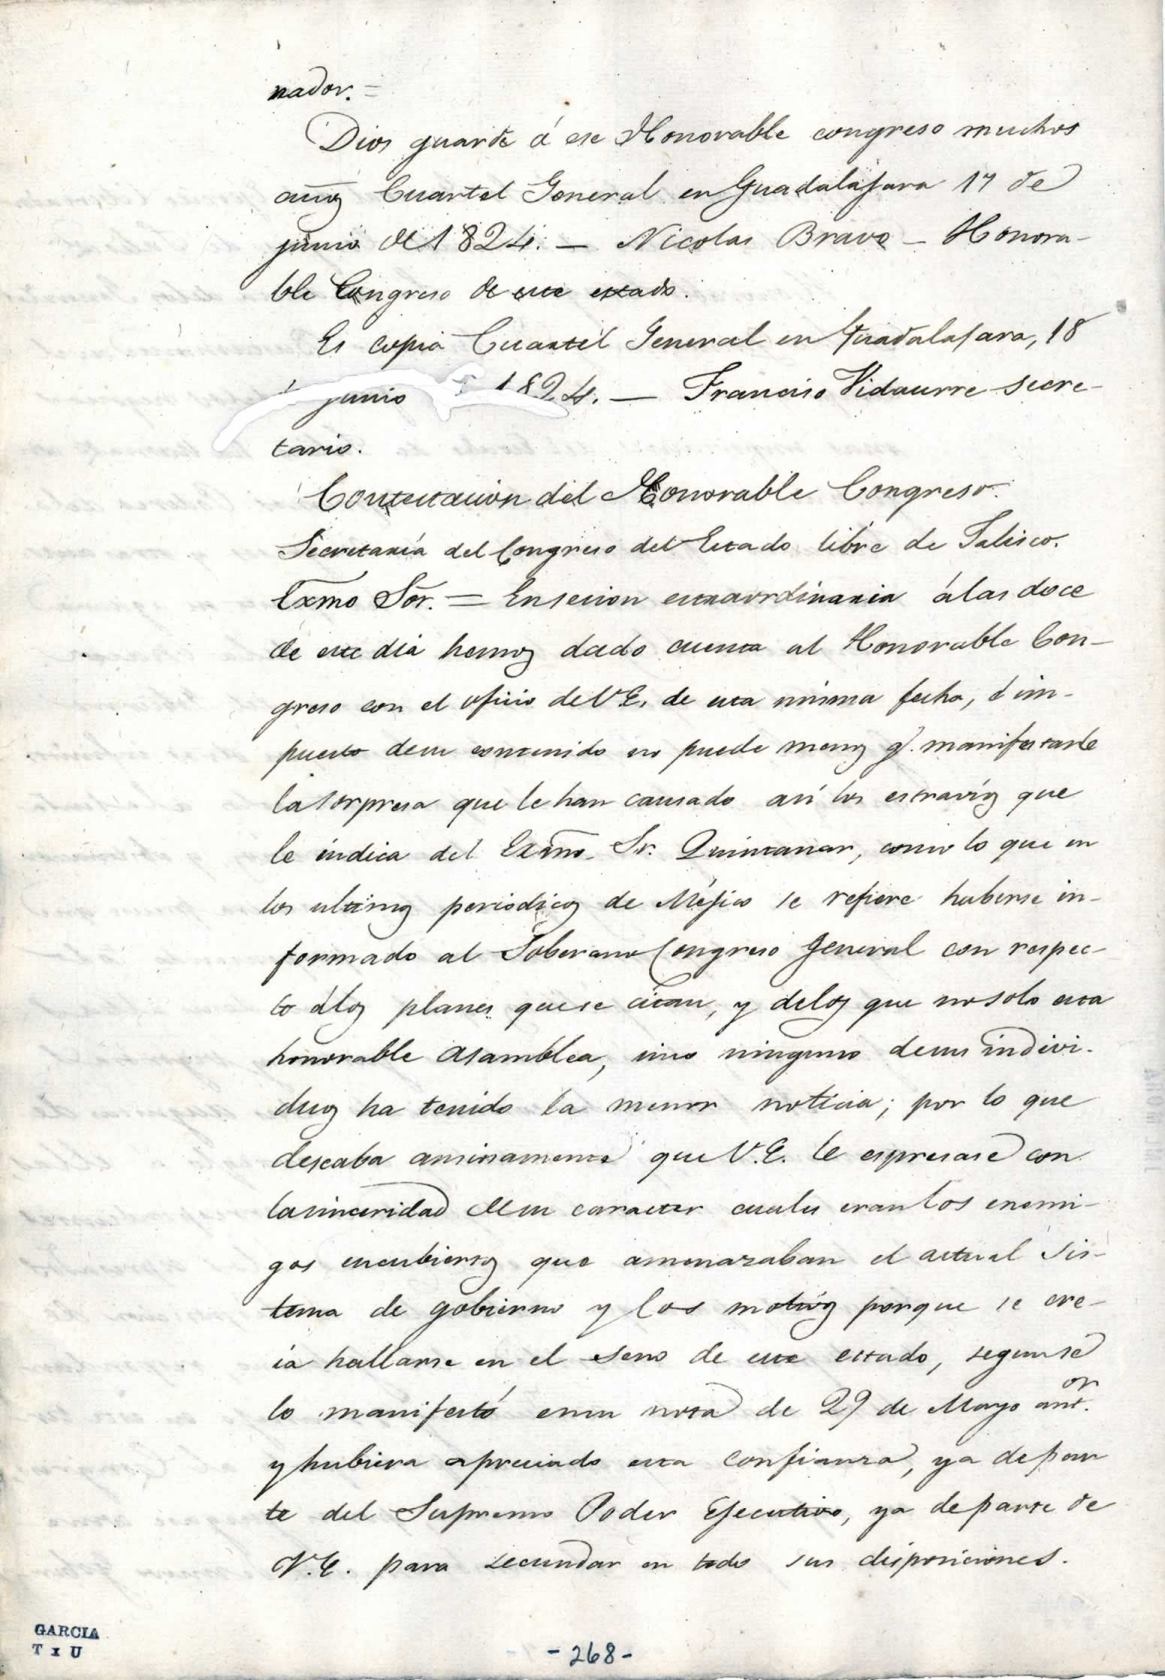 nador. =
Dios guarde á ese Honorable congreso muchos
años Cuartel General en Guadalajara 17 de
junio de 1824. — Nicolas Bravo — Honora-
ble Congreso de este estado.
Es copia Cuartel General en Guadalajara, 18
junio 1824. — Francisco Vidaurre secre-
tario.
Contestacion del Honorable Congreso.
Secretaría del Congreso del Estado libre de Jalisco.
Exmo Sor. = En secion estraordinaria á las doce
de este dia hemos dado cuenta al Honorable Con-
greso con el oficio de V.E. de esta misma fecha, é im-
puesto de su contenido no puede menos q. manifestarle
la sorpresa que le han causado así los estravios que
le indica del Exmo. Sr. Quintanar, como lo que en
los ultimos periodicos de Mejico se refiere haberse in-
formado al Soberano Congreso General con respec-
to á los planes que se citan, y de los que no solo esta
honorable Asamblea, sino ninguno de sus indivi-
duos ha tenido la menor noticia; por lo que
deseaba ansiosamente que V.E. le espresase con
la sinceridad de su caracter cuales eran los enemi-
gos encubiertos que amenazaban el actual sis-
tema de gobierno y los motivos porque se cre-
ia hallarse en el seno de este estado, segun se
lo manifestó en su nota de 29 de Mayo antor.
y hubiera apreciado esta confianza, ya de par
te del Supremo Poder Ejecutivo, ya de parte de
V.E. para secundar en todo sus disposiciones.
GARCIA
T I U
- 268 -